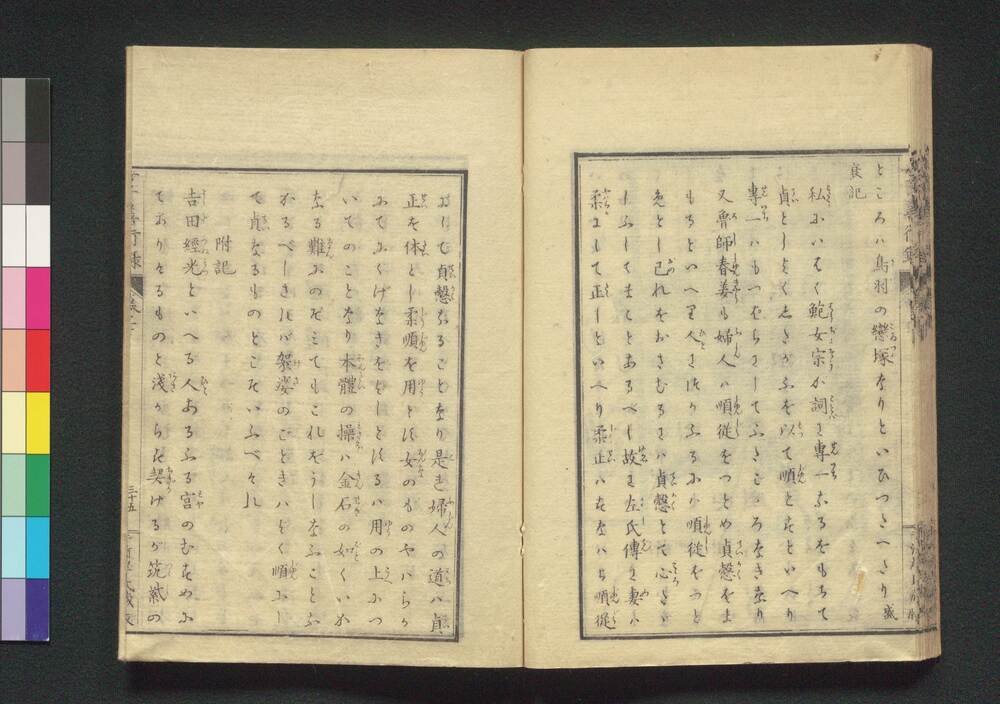 ところハ鳥羽の戀塚なりといひつたへたり盛
衰記
私にいはく鮑女宗が詞に專一なるをもちて
貞としよくしたがふを以て順とすといへり
專一ハもつはらにしてふたこゝろなきなり
又魯師春姜も婦人ハ順從をつとめ貞愨をま
もるといへり人にしたがふるに順從をつと
めとし己れをおさむるにハ貞愨とて心たゞ
しふしてまことあるべし故に左氏傳に妻ハ
柔にして正しといへり柔正ハすなハち順從
にして貞愨なることなり是を婦人の道ハ貞
正を体とし柔順を用とす女のものやハらか
にてにくげなきをよしとするハ用の上につ
いてのことなり本體の操ハ金石の如くいか
なる難にのぞミてもこれをうしなふことな
かるべしされバ袈裟のごときハよく順にし
て貞なるものとこそいふべけれ
附記
吉田經光といへる人ある宮のむすめに
てありけるものと淺からず契けるが筑紫の
三十五